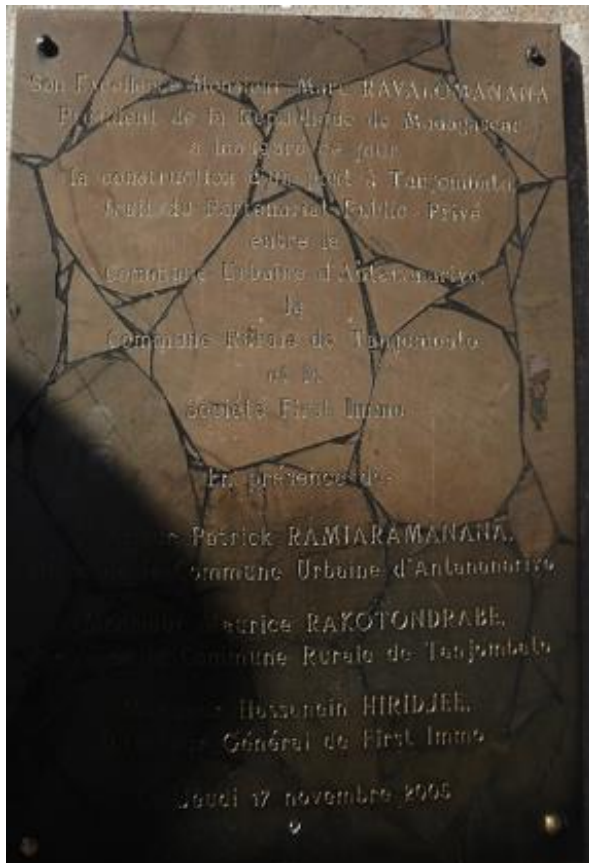 Son Excellence Monsieur Marc RAVALOMANANA
Président de la République de Madagascar
a inauguré ce jour
la construction d'un pont à Tanjombato,
fruit du Partenariat Public Privé
entre la
Commune Urbaine d'Antananarivo,
la
Commune Rurale de Tanjombato
et la
société First Immo
En présence de
Patrick RAMIARAMANANA,
Commune Urbaine d'Antananarivo
Maurice RAKOTONDRABE,
Commune Rurale de Tanjombato
Hassanein HIRIDJEE,
Général de First Immo
Jeudi 17 novembre 2005